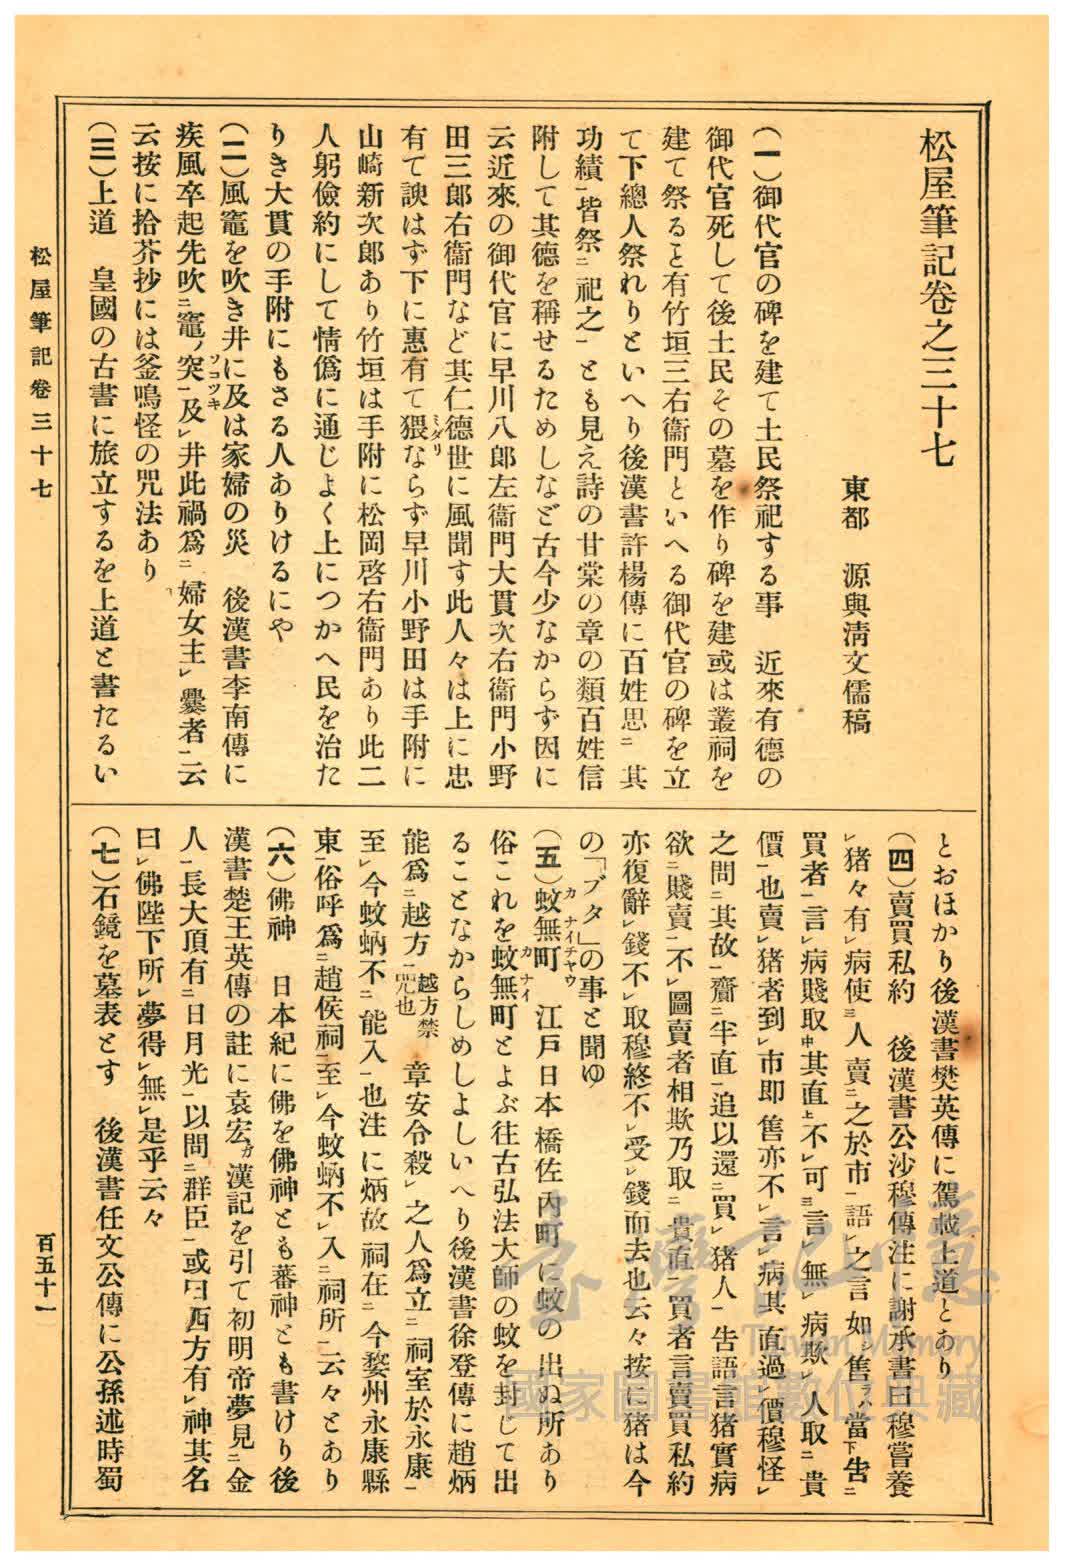 松屋筆記卷之三十七
東都　源與淸文儒稿
(一)御代官の碑を建て土民祭祀する事　近來有德の
御代官死して後土民その墓を作り碑を建或は叢祠を
建て祭ると有竹垣三右衞門といへる御代官の碑を立
て下總人祭れりといへり後漢書許楊傳に百姓思二其
功績一皆祭二祀之一とも見え詩の甘棠の章の類百姓信
附して其德を稱せるためしなど古今少なからず因に
云近來の御代官に早川八郎左衞門大貫次右衞門小野
田三郎右衞門など其仁德世に風聞す此人々は上に忠
有て諛はず下に惠有て猥ミダリならず早川小野田は手附に
山崎新次郎あり竹垣は手附に松岡啓右衞門あり此二
人躬儉約にして情僞に通じよく上につかへ民を治た
りき大貫の手附にもさる人ありけるにや
(二)風竈を吹き井に及は家婦の災　後漢書李南傳に
疾風卒起先吹二竈ノ突ソコツキ一及レ井此禍爲二婦女主レ爨者一云
云按に拾芥抄には釜鳴怪の咒法あり
(三)上道　皇國の古書に旅立するを上道と書たるい
とおほかり後漢書樊英傳に駕載上道とあり
(四)賣買私約　後漢書公沙穆傳注に謝承書曰穆嘗養
レ猪々有レ病使三人賣二之於市一語レ之言如レ售ラバ當下告二
買者一言レ病賤取中其直上不レ可三言レ無レ病欺レ人取二貴
價一也賣レ猪者到レ市即售亦不レ言レ病其直過レ價穆怪レ
之問二其故一齎二半直一追以還二買レ猪人一告語言猪實病
欲二賤賣一不レ圖賣者相欺乃取二貴直一買者言賣買私約
亦復辭レ錢不レ取穆終不レ受レ錢而去也云々按に猪は今
の「ブタ」の事と聞ゆ
(五)蚊無町カナイチヤウ　江戶日本橋佐內町に蚊の出ぬ所あり
俗これを蚊無カナイ町とよぶ往古弘法大師の蚊を封して出
ることなからしめしよしいへり後漢書徐登傳に趙炳
能爲二越方一越方禁咒也　章安令殺レ之人爲立二祠室於永康一
至レ今蚊蚋不二能入一也注に炳故祠在二今婺州永康縣
東一俗呼爲二趙侯祠一至レ今蚊蚋不レ入二祠所一云々とあり
(六)佛神　日本紀に佛を佛神とも蕃神とも書けり後
漢書楚王英傳の註に袁宏ガ漢記を引て初明帝夢見二金
人一長大頂有二日月光一以問二群臣一或曰西方有レ神其名
曰レ佛陛下所レ夢得レ無レ是乎云々
(七)石鏡を墓表とす　後漢書任文公傳に公孫述時蜀
松屋筆記卷三十七
百五十一
臺灣記憶
Taiwan Memory
國家圖書館數位典藏